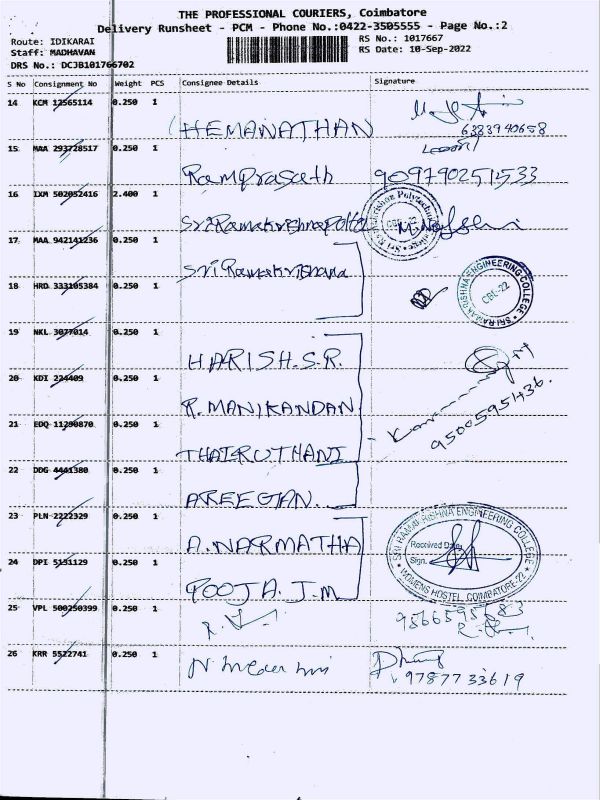 THE PROFESSIONAL COURIERS, Coimbatore
Delivery Runsheet - PCM - Phone No.:0422-3505555 - Page No.:2
Route: IDIKARAI
RS No.: 1017667
Staff: MADHAVAN
RS Date: 10-Sep-2022
DRS No.: DCJB101766702
S No Consignment No Weight PCS Consignee Details Signature
14 KCM 12565114 0.250 1
HEMANATHAN
6383940658
15 MAA 293728517 0.250 1
RamPrasath 909790251533
16 IXM 502052416 2.400 1
Sri Ramakrishna
CBE-22
17 MAA 942141236 0.250 1
Sri Ramakrishna
18 HRD 333105384 0.250 1
SRI RAMAKRISHNA ENGINEERING COLLEGE
CBE-22
19 NKL 3077014 0.250 1
HARISH.S.R.
20 KDI 224409 0.250 1
R. MANIKANDAN
9500595436.
21 EDQ 11290870 0.250 1
THAIRUTHANI
22 DDG 4441380 0.250 1
AREEGAN.
23 PLN 2222329 0.250 1
A. NARMATHA
SRI RAMAKRISHNA ENGINEERING COLLEGE
Received Date
Sign.
WOMENS HOSTEL COIMBATORE-22
24 DPI 5131129 0.250 1
POOJA. J.M
25 VPL 500250399 0.250 1
26 KRR 5522741 0.250 1
9787733619